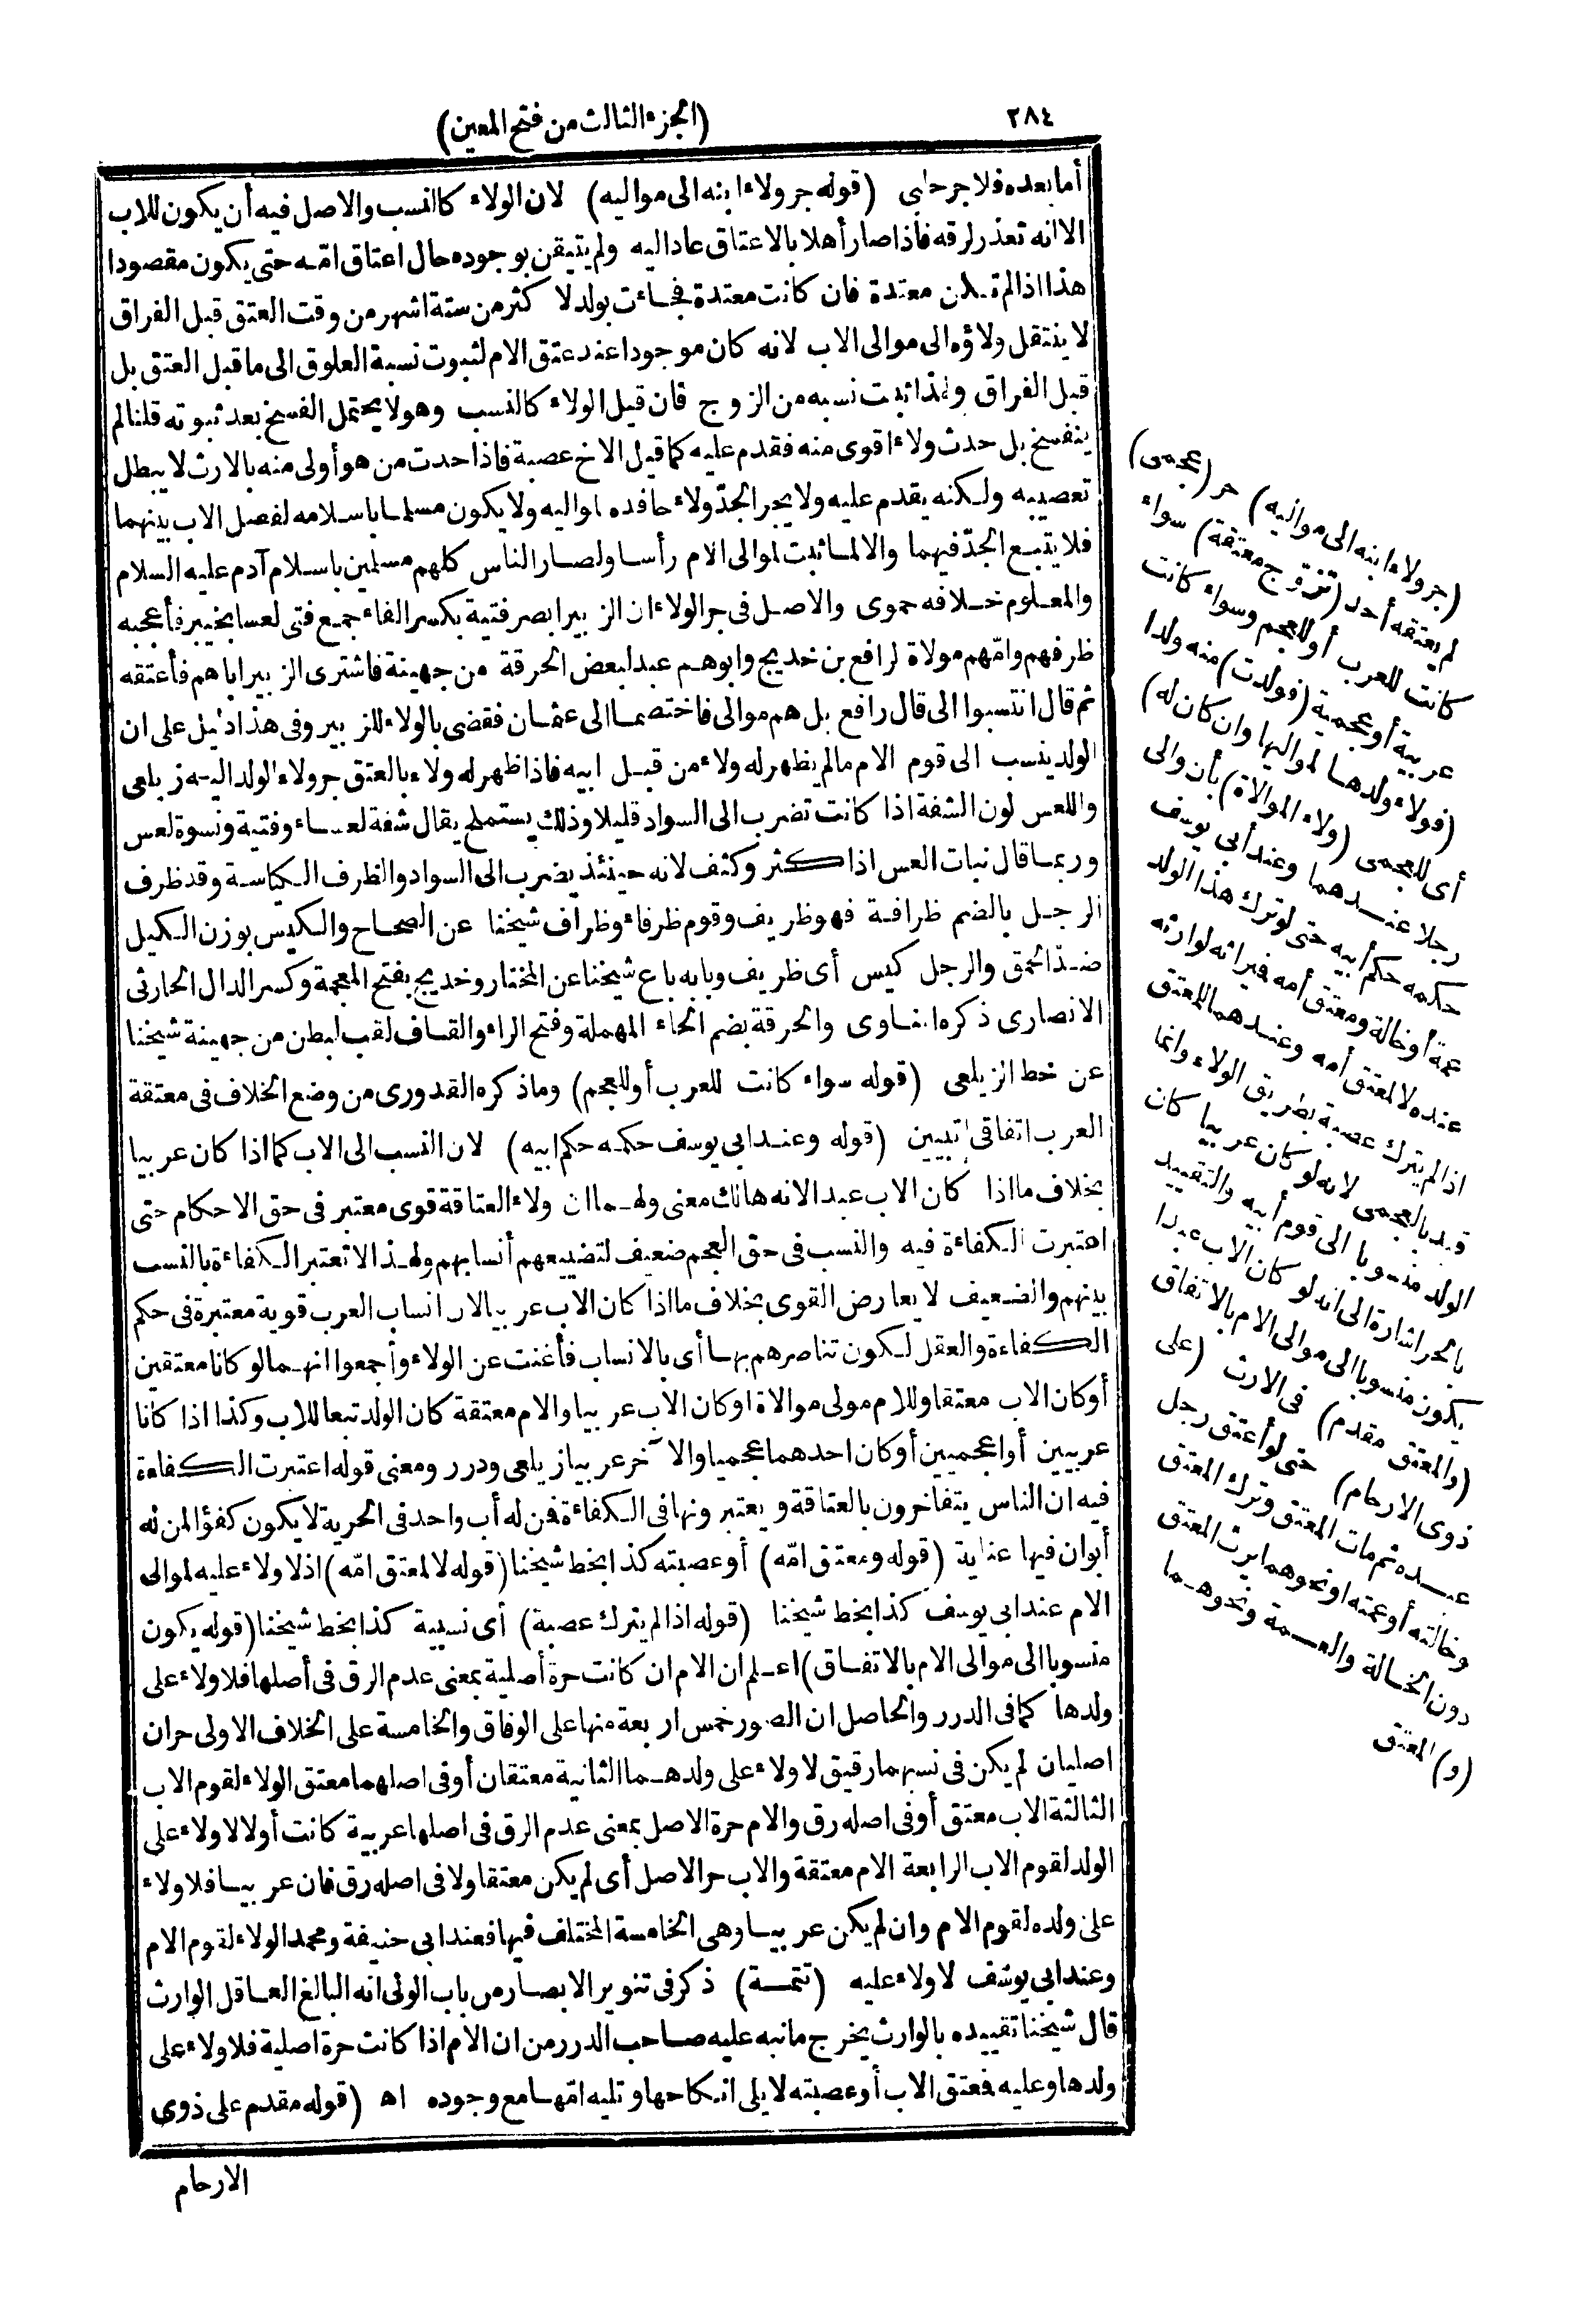 ٢٨٤
(الجزء الثالث من فتح المعين)
أما بعده فلا جر حلبى (قوله جر ولاء ابنه الى مواليه) لان الولاء كالنسب والاصل فيه أن يكون للاب
الا انه تعذر لرقه فاذا صار أهلا بالاعتاق عاد اليه ولم يتيقن بوجوده حال اعتاق امّه حتى يكون مقصودا
هذا اذا لم تكن معتدة فان كانت معتدة فجاءت بولد لا كثر من ستة اشهر من وقت العتق قبل الفراق
لا ينتقل ولاؤه الى موالى الاب لانه كان موجودا عند عتق الام لثبوت نسبة العلوق الى ما قبل العتق بل
قبل الفراق ولهذا ثبت نسبه من الزوج فان قيل الولاء كالنسب وهو لا يحتمل الفسخ بعد ثبوته قلنا لم
ينفسخ بل حدث ولاء اقوى منه فقدم عليه كما قيل الاخ عصبة فاذا حدث من هو أولى منه بالارث لا يبطل
تعصيبه ولكنه يقدم عليه ولا يجر الجدّ ولاء حافده لمواليه ولا يكون مسلما باسلامه لفصل الاب بينهما
فلا يتبع الجدّ فيهما والا لما ثبت لموالى الام رأسا ولصار الناس كلهم مسلمين باسلام آدم عليه السلام
والمعلوم خلافه حموى والاصل فى جر الولاء ان الزبير ابصر فتية بكسر الفاء جمع فتى لعسا بخيبر فأعجبه
ظرفهم وامّهم مولاة لرافع بن خديج وابوهم عبد لبعض الحرقة من جهينة فاشترى الزبير اباهم فأعتقه
ثم قال انتسبوا الى قال رافع بل هم موالى فاختصما الى عثمان فقضى بالولاء للزبير وفى هذا دليل على ان
الولد ينسب الى قوم الام ما لم يظهر له ولاء من قبل ابيه فاذا ظهر له ولاء بالعتق جر ولاء الولد اليه زيلعى
واللعس لون الشفة اذا كانت تضرب الى السواد قليلا وذلك يستملح يقال شفة لعساء وفتية ونسوة لعس
وربما قال نبات العس اذا كثر وكثف لانه حينئذ يضرب الى السواد والظرف الكياسة وقد ظرف
الرجل بالضم ظرافة فهو ظريف وقوم ظرفاء وظراف شيخنا عن الصحاح والكيس بوزن الكيل
ضدّ الحمق والرجل كيس أى ظريف وبابه باع شيخنا عن المختار وخديج بفتح المعجمة وكسر الدال الحارثى
الانصارى ذكره المناوى والحرقة بضم الحاء المهملة وفتح الراء والقاف لقب لبطن من جهينة شيخنا
عن خط الزيلعى (قوله سواء كانت للعرب أو للعجم) وما ذكره القدورى من وضع الخلاف فى معتقة
العرب اتفاقى تبيين (قوله وعند ابى يوسف حكمه حكم ابيه) لان النسب الى الاب كما اذا كان عربيا
بخلاف ما اذا كان الاب عبد الانه هالك معنى ولهما ان ولاء العتاقة قوى معتبر فى حق الاحكام حتى
اعتبرت الكفاءة فيه والنسب فى حق العجم ضعيف لتضييعهم أنسابهم ولهذا لا تعتبر الكفاءة بالنسب
بينهم والضعيف لا يعارض القوى بخلاف ما اذا كان الاب عربيا لان انساب العرب قوية معتبرة فى حكم
الكفاءة والعقل لكون تناصرهم بها أى بالانساب فأغنت عن الولاء وأجمعوا انهما لو كانا معتقين
أو كان الاب معتقا وللام مولى موالاة او كان الاب عربيا والام معتقة كان الولد تبعا للاب وكذا اذا كانا
عربيين أو اعجميين أو كان احدهما عجميا والآخر عربيا زيلعى ودرر ومعنى قوله اعتبرت الكفاءة
فيه ان الناس يتفاخرون بالعتاقة ويعتبرونها فى الكفاءة فمن له أب واحد فى الحرية لا يكون كفؤا لمن له
أبوان فيها عناية (قوله ومعتق امّه) أو عصبته كذا بخط شيخنا (قوله لا لمعتق امّه) اذ لا ولاء عليه لموالى
الام عند ابى يوسف كذا بخط شيخنا (قوله اذا لم يترك عصبة) أى نسبية كذا بخط شيخنا (قوله يكون
منسوبا الى موالى الام بالاتفاق) اعلم ان الام ان كانت حرة أصلية بمعنى عدم الرق فى أصلها فلا ولاء على
ولدها كما فى الدرر والحاصل ان الصور خمس اربعة منها على الوفاق والخامسة على الخلاف الاولى حران
اصليان لم يكن فى نسبهما رقيق لا ولاء على ولدهما الثانية معتقان أو فى اصلهما معتق الولاء لقوم الاب
الثالثة الاب معتق أو فى اصله رق والام حرة الاصل بمعنى عدم الرق فى اصلها عربية كانت أو لا لا ولاء على
الولد لقوم الاب الرابعة الام معتقة والاب حر الاصل أى لم يكن معتقا ولا فى اصله رق فان عربيا فلا ولاء
على ولده لقوم الام وان لم يكن عربيا وهى الخامسة المختلف فيها فعند ابى حنيفة ومحمد الولاء لقوم الام
وعند ابى يوسف لا ولاء عليه (تتمة) ذكر فى تنوير الابصار من باب الولى انه البالغ العاقل الوارث
قال شيخنا تقييده بالوارث يخرج ما نبه عليه صاحب الدرر من ان الام اذا كانت حرة اصلية فلا ولاء على
ولدها وعليه فمعتق الاب أو عصبته لا يلى انكاحها وتليه امّها مع وجوده اه (قوله مقدم على ذوى
الارحام
(جر ولاء ابنه الى مواليه) حر (عجمى)
لم يعتقه أحد (تزوّج معتقة) سواء
كانت للعرب أو للعجم وسواء كانت
عربية أو عجمية (فولدت) منه ولدا
(فولاء ولدها لمواليها وان كان له)
أى للعجمى (ولاء الموالاة) بأن والى
رجلا عندهما وعند أبى يوسف
حكمه حكم أبيه حتى لو ترك هذا الولد
عمة أو خالة ومعتق أمه فميراثه لوارثه
عنده لا لمعتق أمه وعندهما للمعتق
اذا لم يترك عصبة بطريق الولاء وانما
قيد بالعجمى لانه لو كان عربيا كان
الولد منسوبا الى قوم أبيه والتقييد
بالحر اشارة الى انه لو كان الاب عبدا
يكون منسوبا الى موالى الام بالاتفاق
(والمعتق مقدم) فى الارث (على
ذوى الارحام) حتى لو أعتق رجل
عبده ثم مات المعتق وترك المعتق
وخالته أو عمته او نحوهما يرث المعتق
دون الخالة والعمة ونحوهما
(و) المعتق